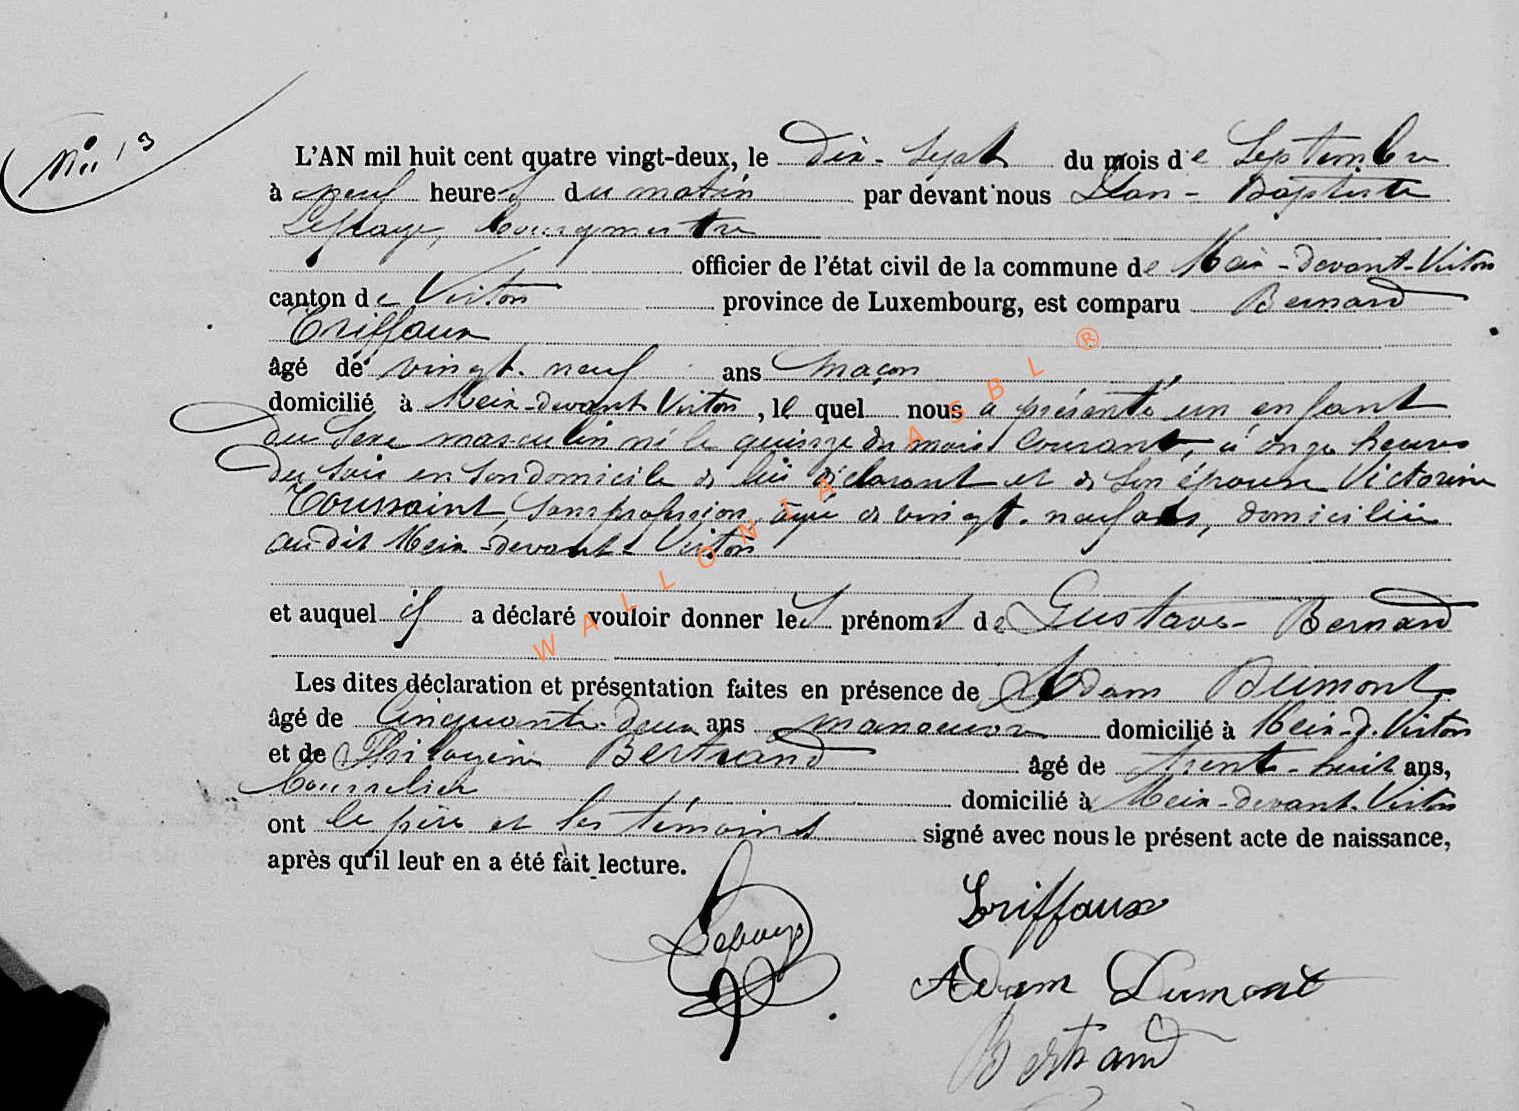 N° 13
L'AN mil huit cent quatre vingt-deux, le dix-sept du mois de Septembre
à neuf heures du matin par devant nous Jean-Baptiste
bourgmestre
officier de l'état civil de la commune de Meix-devant-Virton
canton de Virton province de Luxembourg, est comparu Bernard
Triffaux
âgé de vingt-neuf ans maçon
domicilié à Meix-devant Virton, lequel nous a présenté un enfant
du sexe masculin né le quinze du mois courant, à onze heures
du soir en son domicile de lui déclarant et de son épouse Victorine
Toussaint, sans profession, âgée de vingt-neuf ans, domiciliée
audit Meix-devant-Virton
et auquel il a déclaré vouloir donner les prénoms de Gustave-Bernard
Les dites déclaration et présentation faites en présence de Adam Dumont
âgé de Cinquante-deux ans manoeuvre domicilié à Meix-d.-Virton
et de Bertrand âgé de trente-huit ans,
bourrelier domicilié à Meix-devant-Virton
ont le père et les témoins signé avec nous le présent acte de naissance,
après qu'il leur en a été fait lecture.
Triffaux
Adam Dumont
Bertrand
WALLONIA ASBL ®